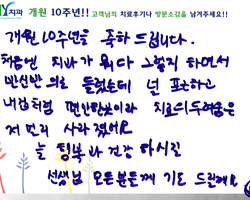 치과 개원 10주년!! 고객님의 치료후기나 방문소감을 남겨주세요!!
개원 10주년을 축하 드립니다.
처음엔 치과가 뭐 다 그렇지 하면서
반신반의로 들렸는데 넌 포근하고
내집처럼 편안함이라 치료의 두려움은
저 멀리 사라졌어요
늘 행복과 건강 하시길
선생님 모든분들께 기도 드릴께요